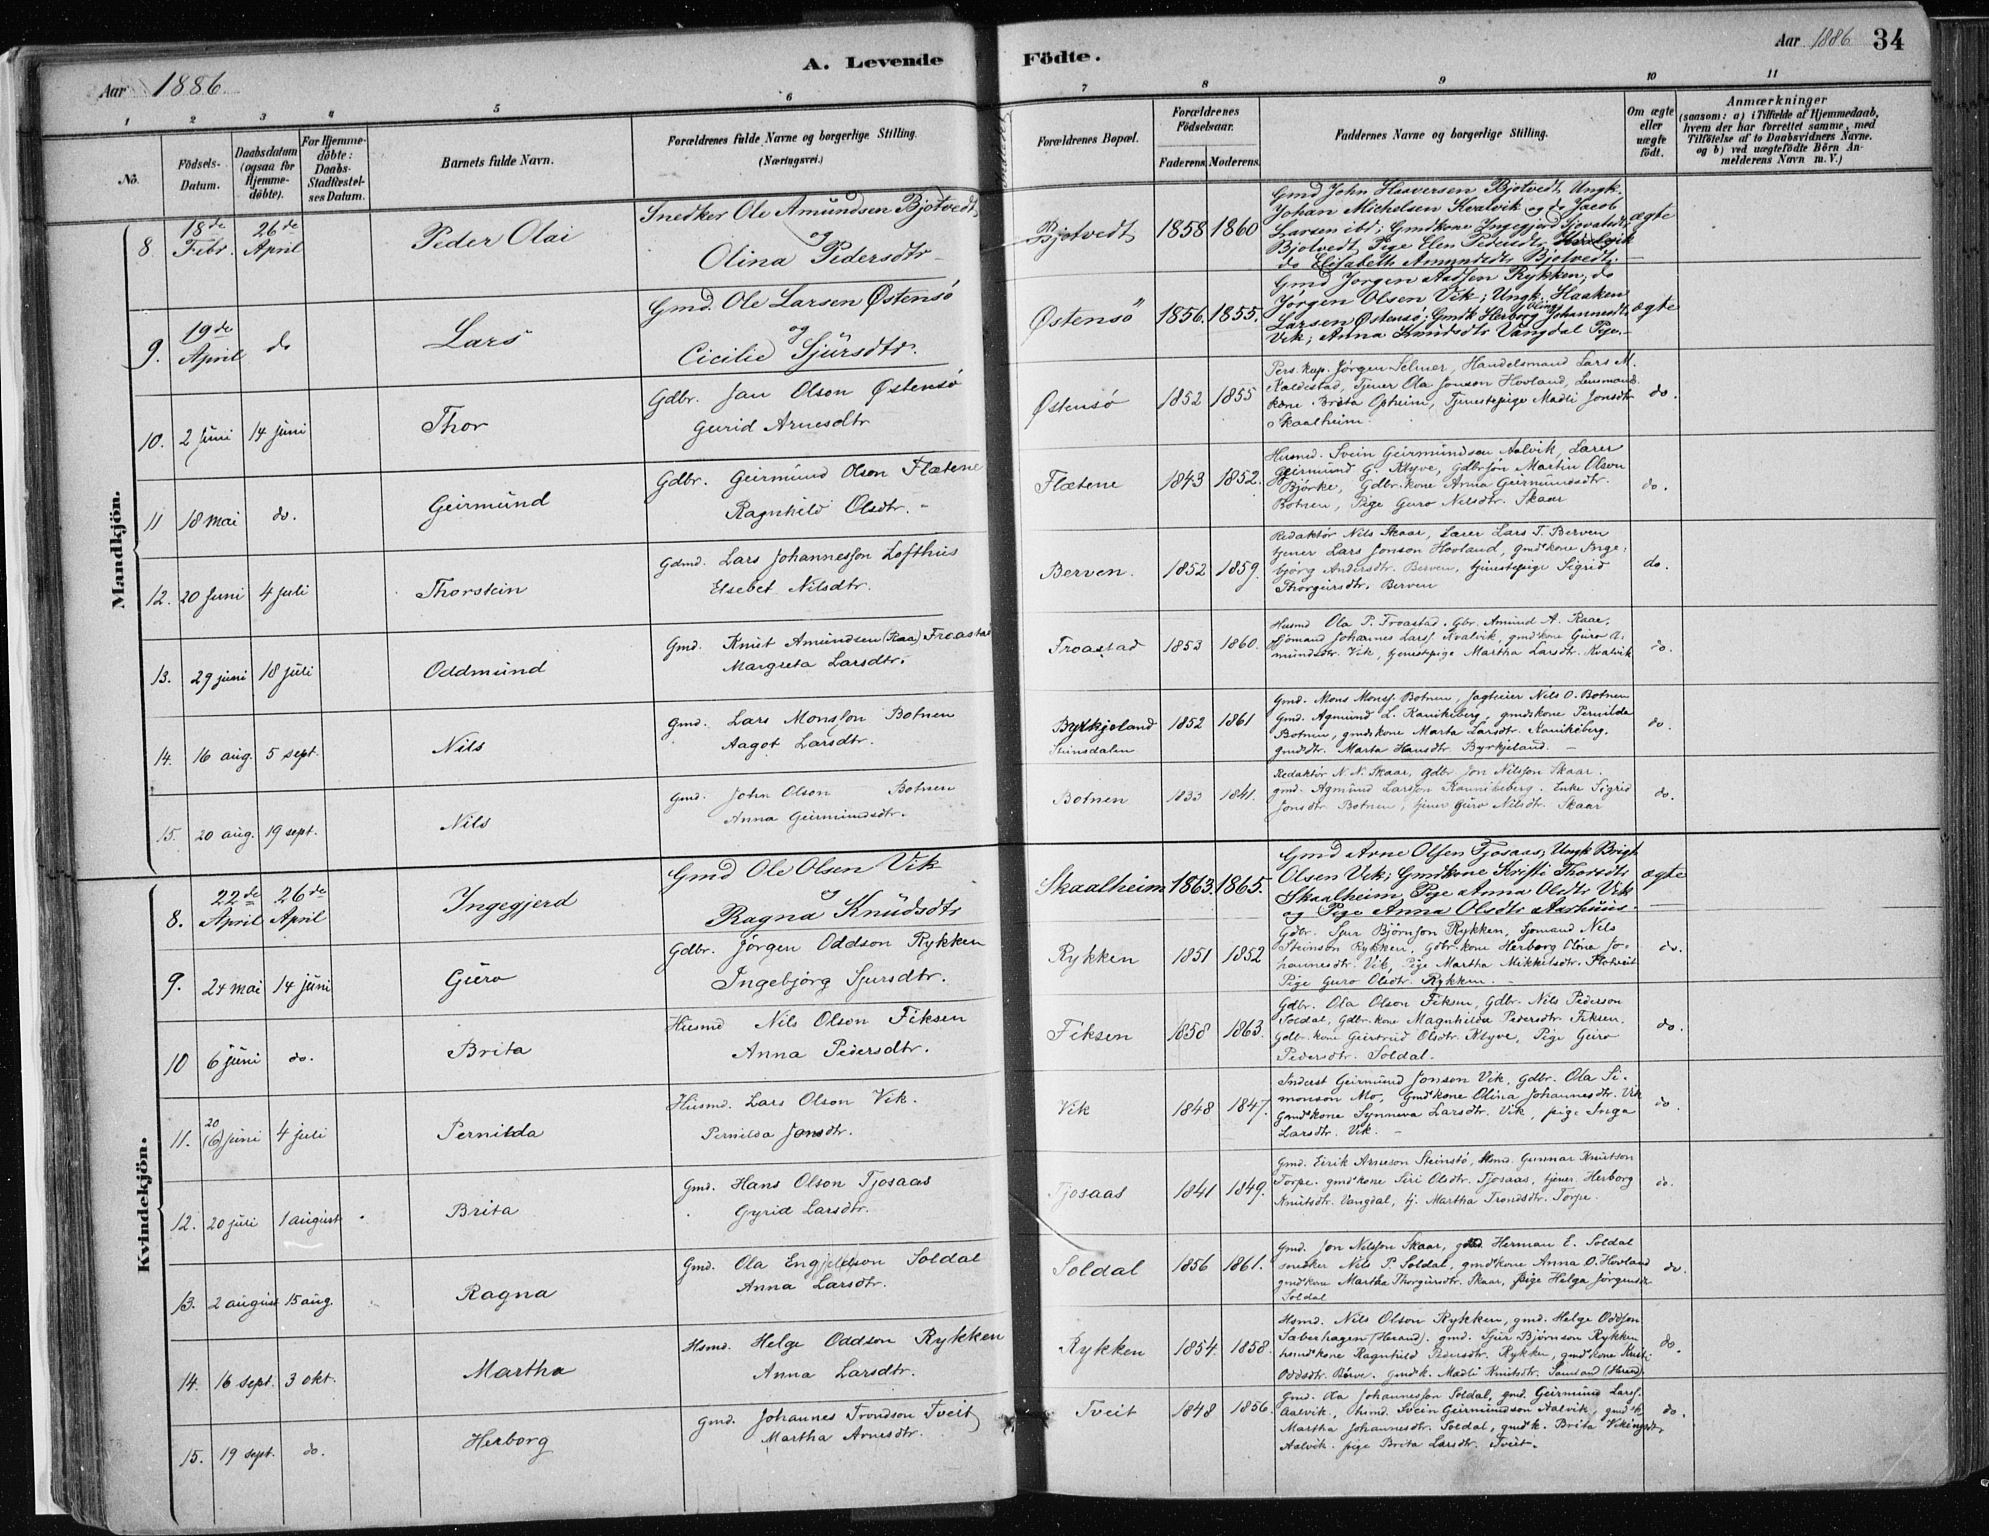 A. Levende Födte.
Aar 1886
Aar 1886 34
1 2 3 4 5 6 7 8 9 10 11
No.
Födsels-Datum.
Daabsdatum (ogsaa for Hjemme-döbte).
For Hjemme-döbte: Daabs-Stadfæstel-ses Datum.
Barnets fulde Navn.
Forældrenes fulde Navne og borgerlige Stilling. (Næringsvei.)
Forældrenes Bopæl.
Forældrenes Födselsaar.
Faderens. Moderens.
Faddernes Navne og borgerlige Stilling.
Om ægte eller uægte födt.
Anmærkninger
(saasom: a) i Tilfælde af Hjemmedaab, hvem der har forrettet samme, med Tilföielse af to Daabsvidners Navne, og b) ved uægtefödte Börn Anmelderens Navn m. V.)
Mandkjön.
8. 18de Febr. 26de April Peder Olai
Snedker Ole Amundsen Bjotvedt
og
Olina Pedersdtr
Bjotvedt 1858 1860
Gmd John Haaversen Bjotvedt, Ungk.
Johan Michelsen Kvalvik og do Jacob
Larsen ibt; Gmdkone Ingegjerd Sjovatsdtr
Bjotvedt Pige Elen Pedersdtr Kvalvik
do Elisabeth Amundsdtr Bjotvedt.
ægte
9. 19de April do Lars
Gmd. Ole Larsen Østensö
og
Cicilie Sjursdtr.
Østensö 1856. 1855.
Gmd Jorgen Aadsen Rykken; do
Jørgen Olsen Vik; Ungk. Haaken
Larsen Østensö; Gmdk Herborg Olina Johannesdtr
Vik; Anna Knudsdtr Vangdal Pige.
ægte
10. 2 Juni 14 juni Thor
Gdbr. Jan Olson Østensö
Gurid Arnesdtr
Østensö 1852 1855
Pers. kap. Jørgen Selmer, Handelsmand Lars M.
Kaldestad, Tjener Ola Jonson Hovland, Lensmands
kone Brita Opheim, Tjenestepige Madli Jonsdtr
Skaalheim.
do.
11 18 mai do. Geirmund
Gdbr. Geirmund Olson Flætene
Ragnhild Olsdtr.
Flætene 1843 1852.
Husmd. Svein Geirmundson Aalvik, Lærer
Geirmund G. Klyve, Gdbrson Martin Olson
Bjørke, Gdbr. kone Anna Geirmundsdtr.
Botnen, Pige Guro Nilsdtr. Skaar
do.
12. 20 Juni 4 juli Thorstein
Gdmd. Lars Johannesson Lofthus
Elsebet Nilsdtr.
Berven. 1852 1859.
Redaktør Nils Skaar, Lærer Lars T. Berven
tjener Lars Jonson Hovland, gmd'kone Inge-
björg Andersdtr. Berven, tjenestepige Sigrid
Thorgursdtr. Berven
do.
13. 29 juni 18 juli Oddmund
Gmd. Knut Amundsen (Raa) Froastad
Margreta Larsdtr.
Froastad 1853 1860.
Husmd Ola P. Froastad. Gbr. Amund A. Raae,
Sjömand Johannes Larss. Kvalvik, gmd'kone Guro A-
mundsdtr. Vik, tjenestepige Martha Larsdtr. Kvalvik
do.
14. 16 aug. 5 sept. Nils
Gmd. Lars Monsson Botnen
Aagot Larsdtr.
Byrkjeland
Steinsdalen 1852 1861
Gmd. Mons Monss. Botnen, Nils O. Botnen
Gmd. Agmund L. Kanikeberg, gmdskone Pernilda
Botnen, gmdskone Marta Larsdtr. Kanikeberg,
gmdsdtr. Marta Hansdtr. Byrkjeland.
do.
15. 20 aug. 19 sept. Nils
Gmd. John Olson Botnen
Anna Geirmundsdtr.
Botnen 1833 1841.
Redaktör N. N. Skaar, gdbr Jon Nilsson Skaar,
gmd. Agmund Larsson Kannikeberg. Enke Sigrid
Jonsdtr. Botnen, tjener Guro Nilsdtr. Skaar
do.
Kvindekjön.
8. 22de April 26de April Ingegjerd
Gmd Ole Olsen Vik
og
Ragna Knudsdtr
Skaalheim 1863. 1865.
Gmd Arne Olsen Tjosaas; Ungk Brigt
Olsen Vik; Gmdkone Kristi Thorsdtr
Skaalheim, Pige Anna Olsdtr Vik
og Pige Anna Olsdtr Aarhuus.
ægte
9. 24 mai 14 juni Guro
Gdbr. Jörgen Oddson Rykken
Ingebjörg Sjursdtr.
Rykken 1851 1852
Gdbr. Sjur Björnson Rykken, Sjomand Nils
Steinson Rykken, Gdbr. kone Herborg Olina Jo-
hannesdtr. Vik, Pige Martha Mikkelsdtr. Flotveit
Pige Guro Olsdtr. Rykken.
do.
10 6 juni do. Brita
Husmd Nils Olson Fiksen
Anna Pedersdtr.
Fiksen 1858 1863.
Gdbr. Ola Olson Fiksen, Gdbr. Nils Pederson
Soldal, Gdbr. kone Magnhilda Pedersdtr. Fiksen,
Gdbr. kone Geirtrud Olsdtr. Klyve, Pige Guro
Pedersdtr. Soldal.
do.
11. 20 (6) juni 4 juli Pernilda
Husmd. Lars Olson Vik.
Pernilda Jonsdtr.
Vik 1848 1847.
Inderst Geirmund Jonson Vik, Gdbr. Ola Si-
monson Mo, Gmd'kone Olina Johannesdtr. Vik
Gmd'kone Synneva Larsdtr. Vik, pige Inga
Larsdtr. Vik.
do.
12. 20 juli 1 august Brita
Gmd. Hans Olson Tjosaas
Gyrid Larsdtr.
Tjosaas 1841 1849.
Gmd. Eirik Arneson Steinstö, Hsmd. Gunnar Knutson
Torpe. gmd'kone Siri Olsdtr. Tjosaas, tjener Herborg
Knutsdtr. Vangdal, tj. Martha Trondsdtr. Torpe.
do.
13. 2 august 15 aug. Ragna
Gmd. Ola Engjeldson Soldal
Anna Larsdtr.
Soldal 1856 1861.
Gmd. Jon Nilsson Skaar, gmd. Herman E. Soldal
snedker Nils P. Soldal, gmd'kone Anna O. Hovland
gmd'kone Martha Thorgursdtr. Skaar, pige Helga Jörgensdtr
Soldal
do.
14. 16 sept. 3 okt. Martha
Hsmd. Helge Oddson Rykken
Anna Larsdtr.
Rykken 1854. 1858.
Hsmd. Nils Olson Rykken, gmd. Helge Oddson
Saberhagen (Herand). gmd. Sjur Björnson Rykken
hsmd'kone Ragnhild Pedersdtr. Rykken, gmd'kone Kristi
Oddsdtr. Börve. gmd'k. Madli Knutsdtr. Samland (Herand).
do.
15. 19 sept. do. Herborg
Gmd. Johannes Trondson Tveit
Martha Arnesdtr.
Tveit 1848 1856.
Gmd. Ola Johannesson Soldal, gmd. Geirmund Larss.
Aalvik, hsmd. Svein Geirmundson Aalvik, gmd'k.
Martha Johannesdtr. Soldal, gmd'k. Brita Vikingsdtr.
Aalvik. pige Brita Larsdtr. Tveit.
do.